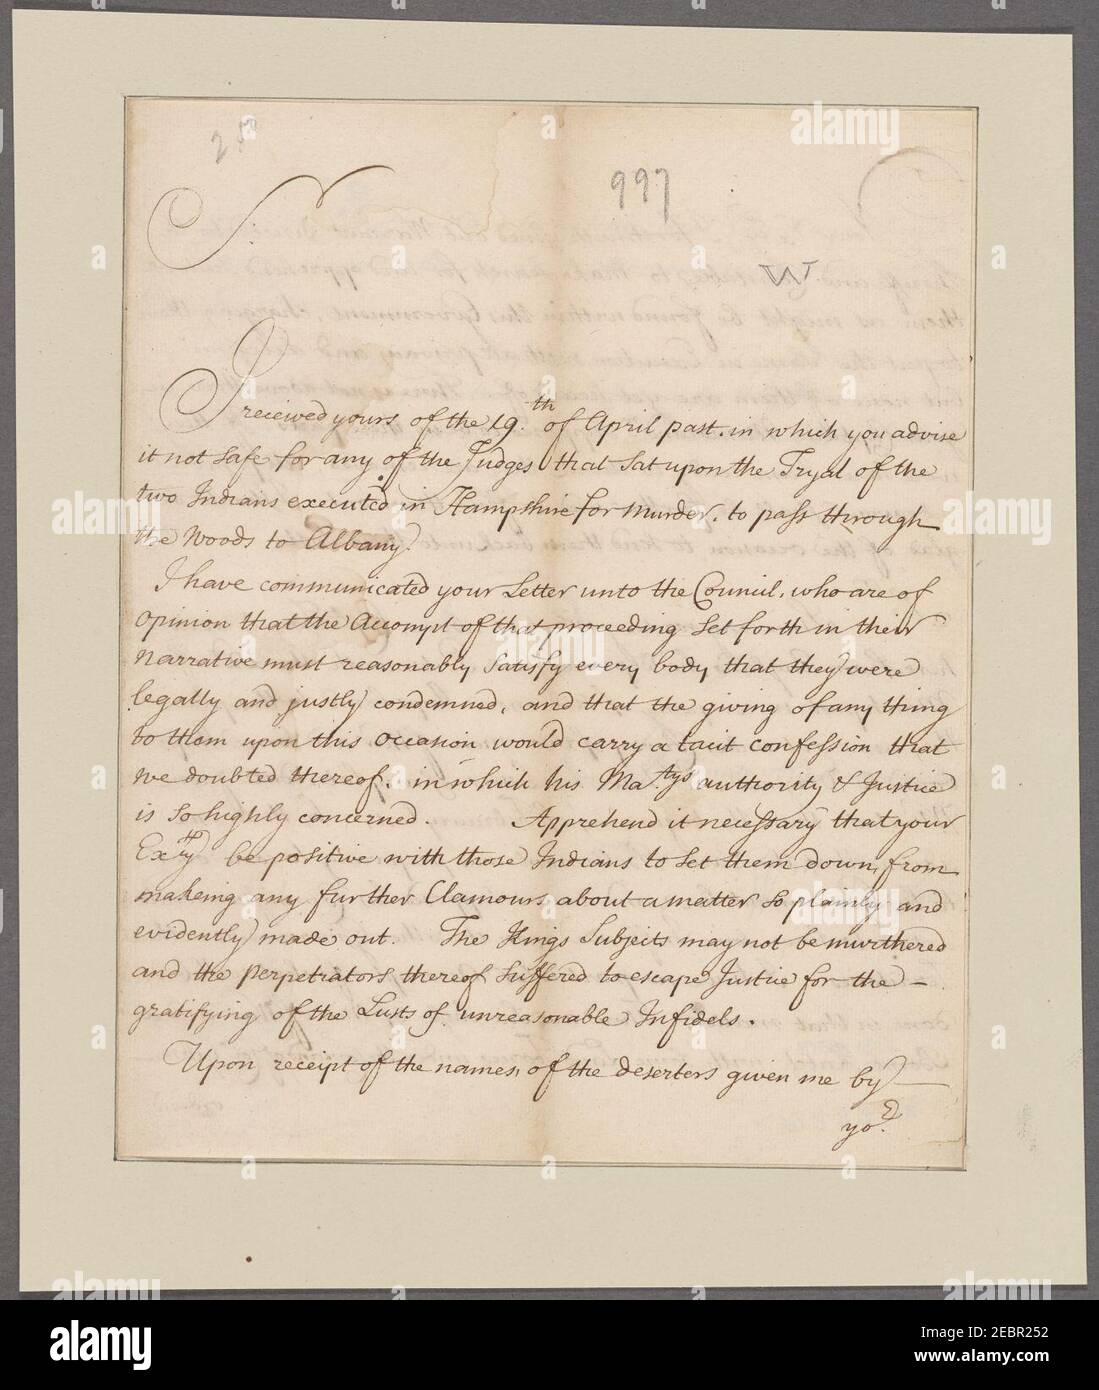 250
997
W.
S:
I received yours of the 19.th of April past, in which you advise
it not safe for any of the Judges that sat upon the Tryal of the
two Indians executed in Hampshire for Murder, to pass through
the Woods to Albany.
I have communicated your Letter unto the Council, who are of
Opinion that the Accompt of that proceeding set forth in their
Narrative must reasonably satisfy every body that they were
legally and justly condemned, and that the giving of any thing
to them upon this Occasion would carry a tacit confession that
we doubted thereof, in which his Ma.tys authority & Justice
is so highly concerned. Apprehend it necessary that your
Exty be positive with those Indians to set them down, from
makeing any further Clamours about a matter so plainly and
evidently made out. The Kings Subjects may not be murthered
and the perpetrators thereof suffered to escape Justice for the –
gratifying of the Lusts of unreasonable Infidels.
Upon receipt of the names, of the deserters given me by
yo.
alamy
Image ID: 2EBR252
www.alamy.com